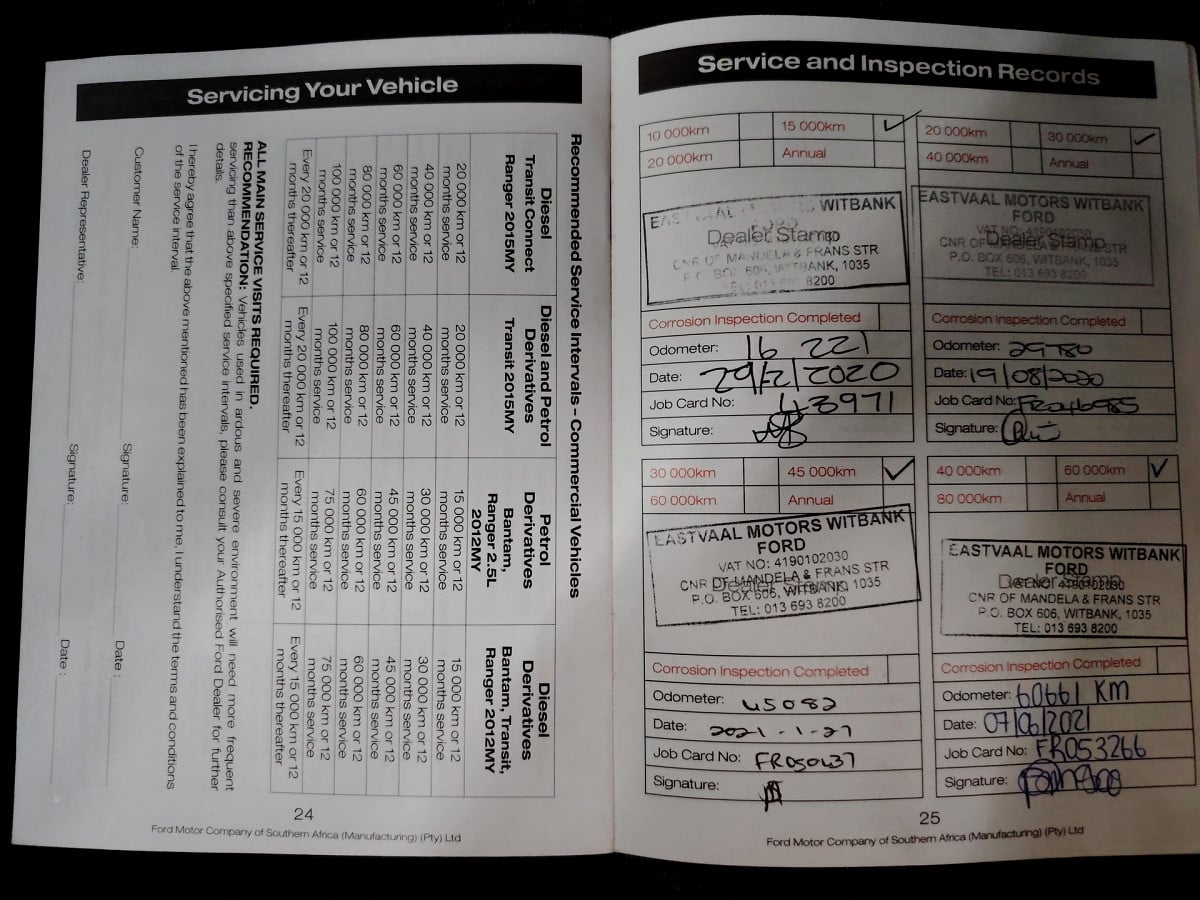 Servicing Your Vehicle
Recommended Service Intervals - Commercial Vehicles
Diesel
Transit Connect
Ranger 2015MY
Diesel and Petrol
Derivatives
Transit 2015MY
Petrol
Derivatives
Bantam,
Ranger 2.5L
2012MY
Diesel
Derivatives
Bantam, Transit,
Ranger 2012MY
20 000 km or 12
months service
20 000 km or 12
months service
15 000 km or 12
months service
15 000 km or 12
months service
40 000 km or 12
months service
40 000 km or 12
months service
30 000 km or 12
months service
30 000 km or 12
months service
60 000 km or 12
months service
60 000 km or 12
months service
45 000 km or 12
months service
45 000 km or 12
months service
80 000 km or 12
months service
80 000 km or 12
months service
60 000 km or 12
months service
60 000 km or 12
months service
100 000 km or 12
months service
100 000 km or 12
months service
75 000 km or 12
months service
75 000 km or 12
months service
Every 20 000 km or 12
months thereafter
Every 20 000 km or 12
months thereafter
Every 15 000 km or 12
months thereafter
Every 15 000 km or 12
months thereafter
ALL MAIN SERVICE VISITS REQUIRED.
RECOMMENDATION: Vehicles used in ardous and severe environment will need more frequent
servicing than above specified service intervals, please consult your Authorised Ford Dealer for further
details.
I hereby agree that the above mentioned has been explained to me, I understand the terms and conditions
of the service interval.
Customer Name: Signature: Date :
Dealer Representative: Signature: Date :
24
Ford Motor Company of Southern Africa (Manufacturing) (Pty) Ltd
Service and Inspection Records
10 000km 15 000km ✓
20 000km Annual
EASTVAAL WITBANK
Dealer Stamp
CNR OF MANDELA & FRANS STR
P.O. BOX 606, WITBANK, 1035
8200
Corrosion Inspection Completed
Odometer: 16 221
Date: 29/2/2020
Job Card No: 43971
Signature:
20 000km 30 000km ✓
40 000km Annual
EASTVAAL MOTORS WITBANK
FORD
VAT NO: 4190102030
Dealer Stamp
CNR OF MANDELA & FRANS STR
P.O. BOX 606, WITBANK, 1035
TEL: 013 693 8200
Corrosion Inspection Completed
Odometer: 29780
Date: 19/08/2020
Job Card No: FR046985
Signature:
30 000km 45 000km ✓
60 000km Annual
EASTVAAL MOTORS WITBANK
FORD
VAT NO: 4190102030
CNR OF MANDELA & FRANS STR
Dealer Stamp
P.O. BOX 606, WITBANK, 1035
TEL: 013 693 8200
Corrosion Inspection Completed
Odometer: 45082
Date: 2021-1-27
Job Card No:
Signature:
40 000km 60 000km ✓
80 000km Annual
EASTVAAL MOTORS WITBANK
FORD
Dealer Stamp
VAT NO: 4190102030
CNR OF MANDELA & FRANS STR
P.O. BOX 606, WITBANK, 1035
TEL: 013 693 8200
Corrosion Inspection Completed
Odometer: 60661 KM
Date: 07/06/2021
Job Card No: FR053266
Signature:
25
Ford Motor Company of Southern Africa (Manufacturing) (Pty) Ltd